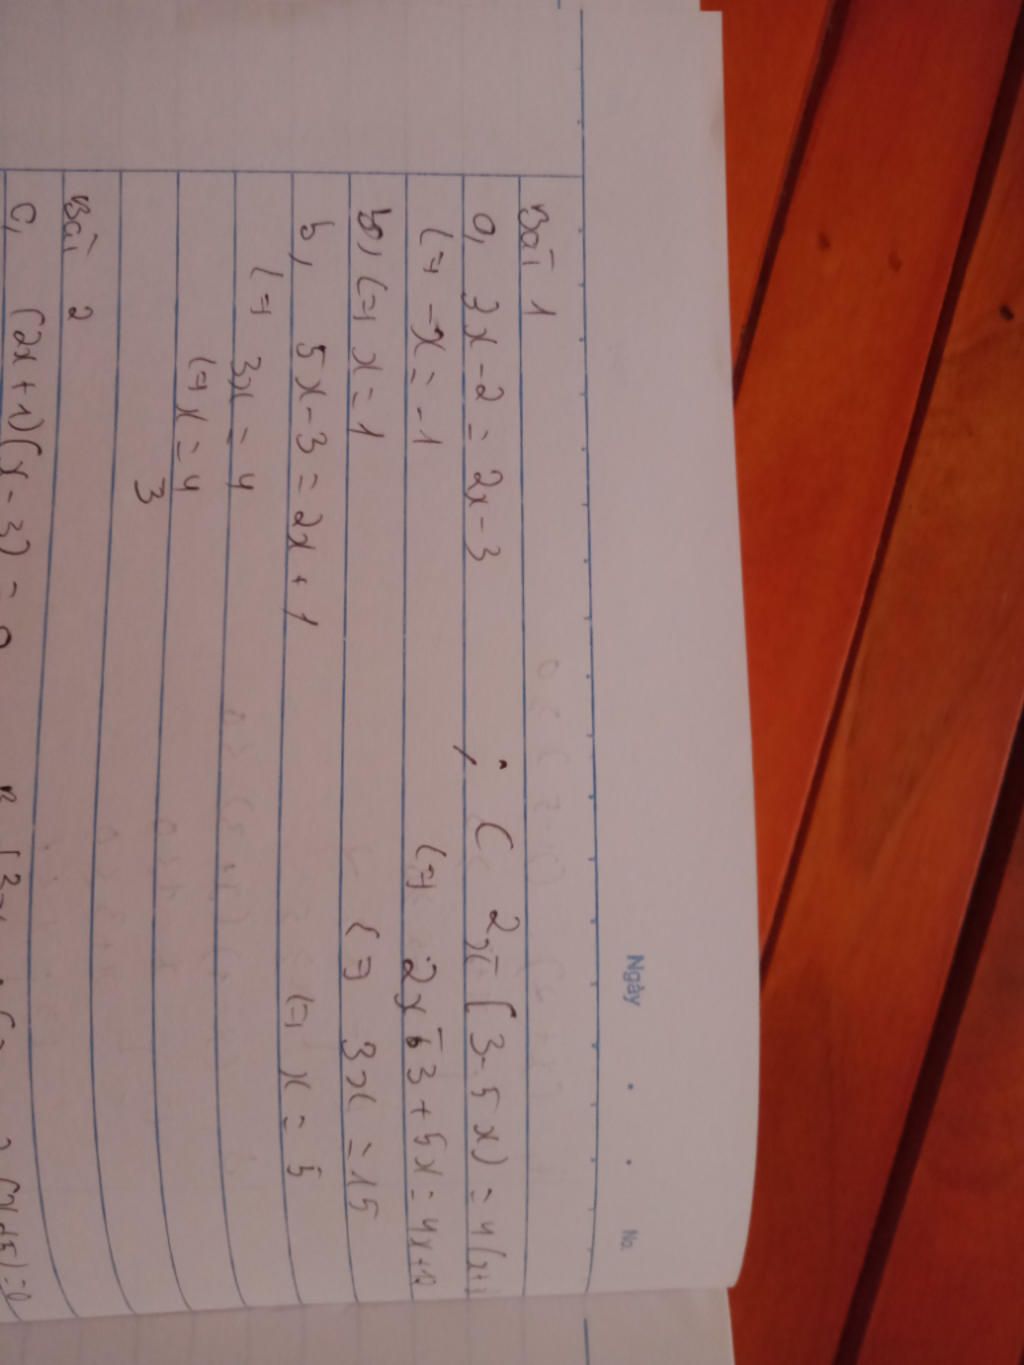 Ngày . . No.
Bài 1
a, 3x - 2 = 2x - 3
(=) -x = -1
b, (=) x = 1
b, 5x - 3 = 2x + 1
(=) 3x = 4
(=) x = 4
3
; C 2x - (3 - 5x) = 4(x+3
(=) 2x - 3 + 5x = 4x + 12
(=) 3x = 15
(=) x = 5
Bài 2
C, (2x + 1)(x - 3) = 0
(x+5) = 0